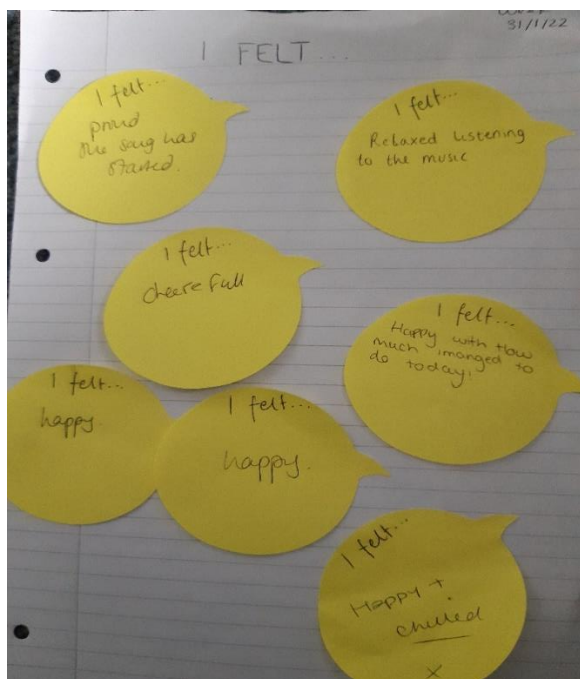 31/1/22
I FELT...
I felt...
proud
the song has
started.
I felt...
Relaxed listening
to the music
I felt...
cheerefull
I felt...
Happy with How
much imanged to
do today!
I felt...
happy.
I felt...
happy.
I felt...
Happy +
chilled
x